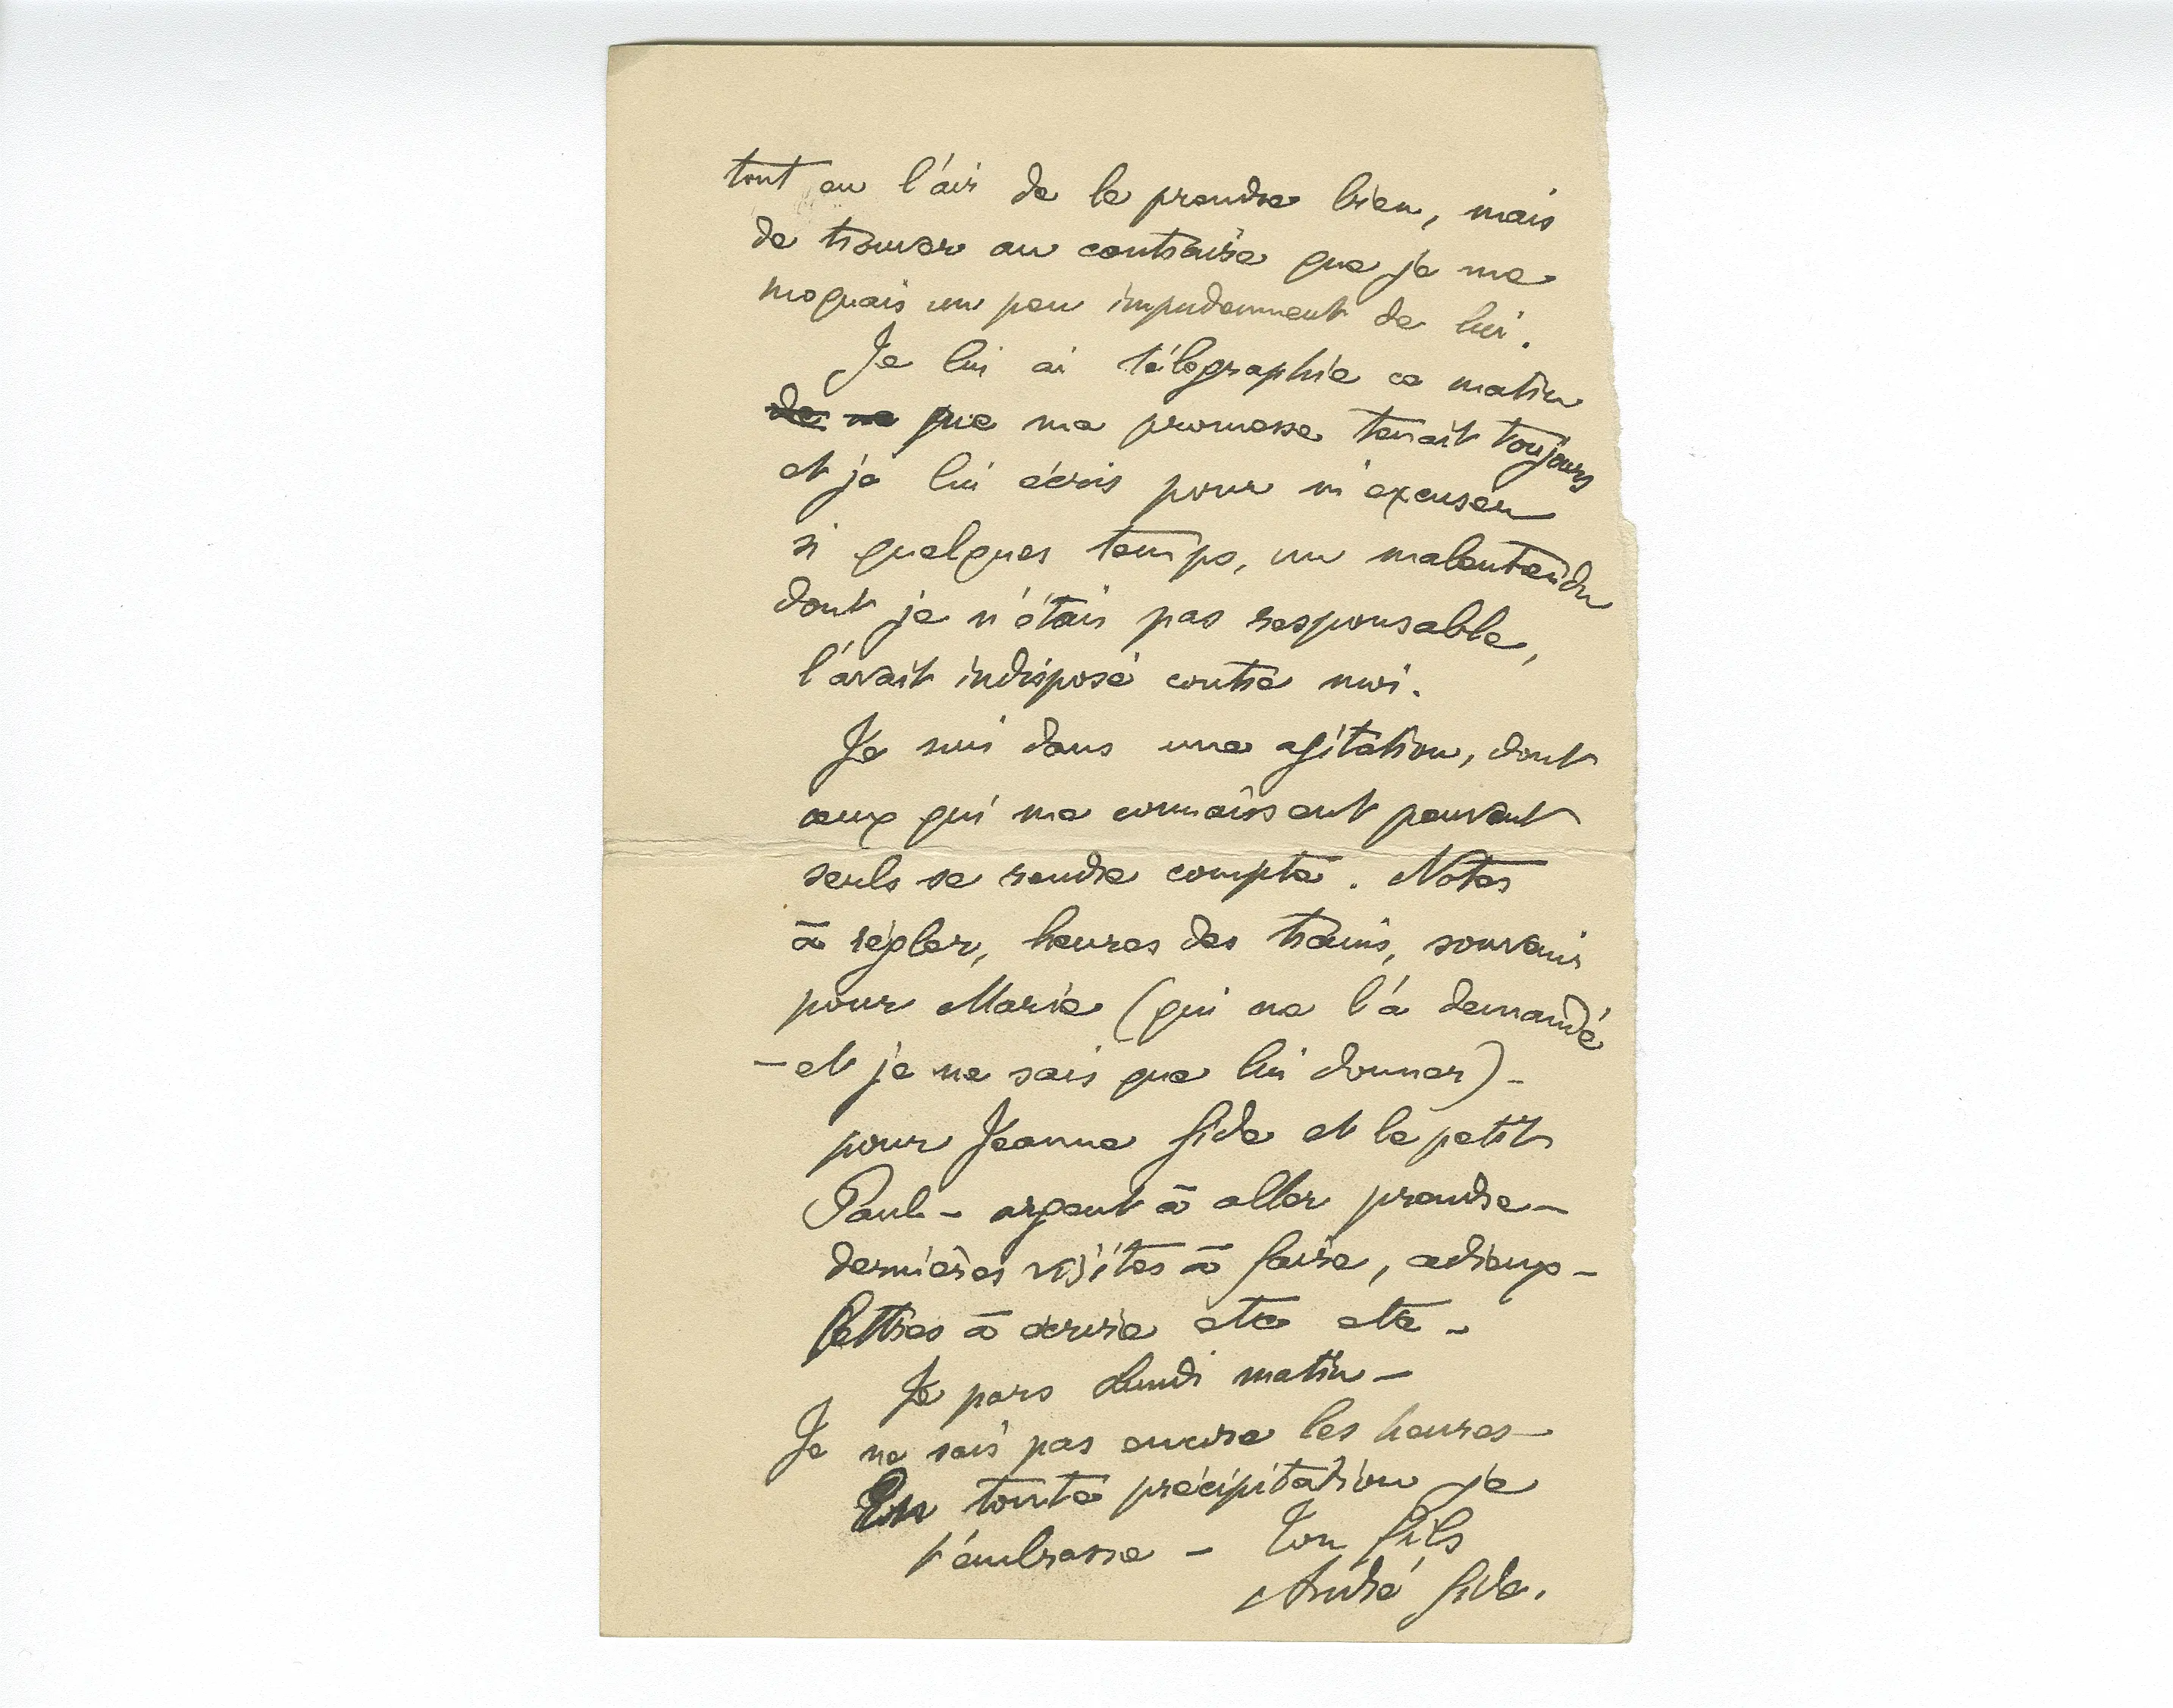 tout en l'air de le prendre bien, mais
de trouver au contraire que je me
moquais un peu impudemment de lui.
Je lui ai télégraphié ce matin
de ne que ma promesse tenait toujours
et je lui écris pour m'excuser
si quelques temps, un malentendu
dont je n'étais pas responsable,
l'avait indisposé contre moi.
Je suis dans une agitation, dont
ceux qui me connaissent peuvent
seuls se rendre compte. Notes
à régler, heures des trains, souvenir
pour Marie (qui me l'a demandé
– et je ne sais que lui donner) –
pour Jeanne Gide et le petit
Paul – argent à aller prendre –
dernières visites à faire, adieux –
lettres à écrire etc etc –
Je pars Lundi matin –
Je ne sais pas encore les heures –
En toute précipitation je
t'embrasse – Ton fils
André Gide.